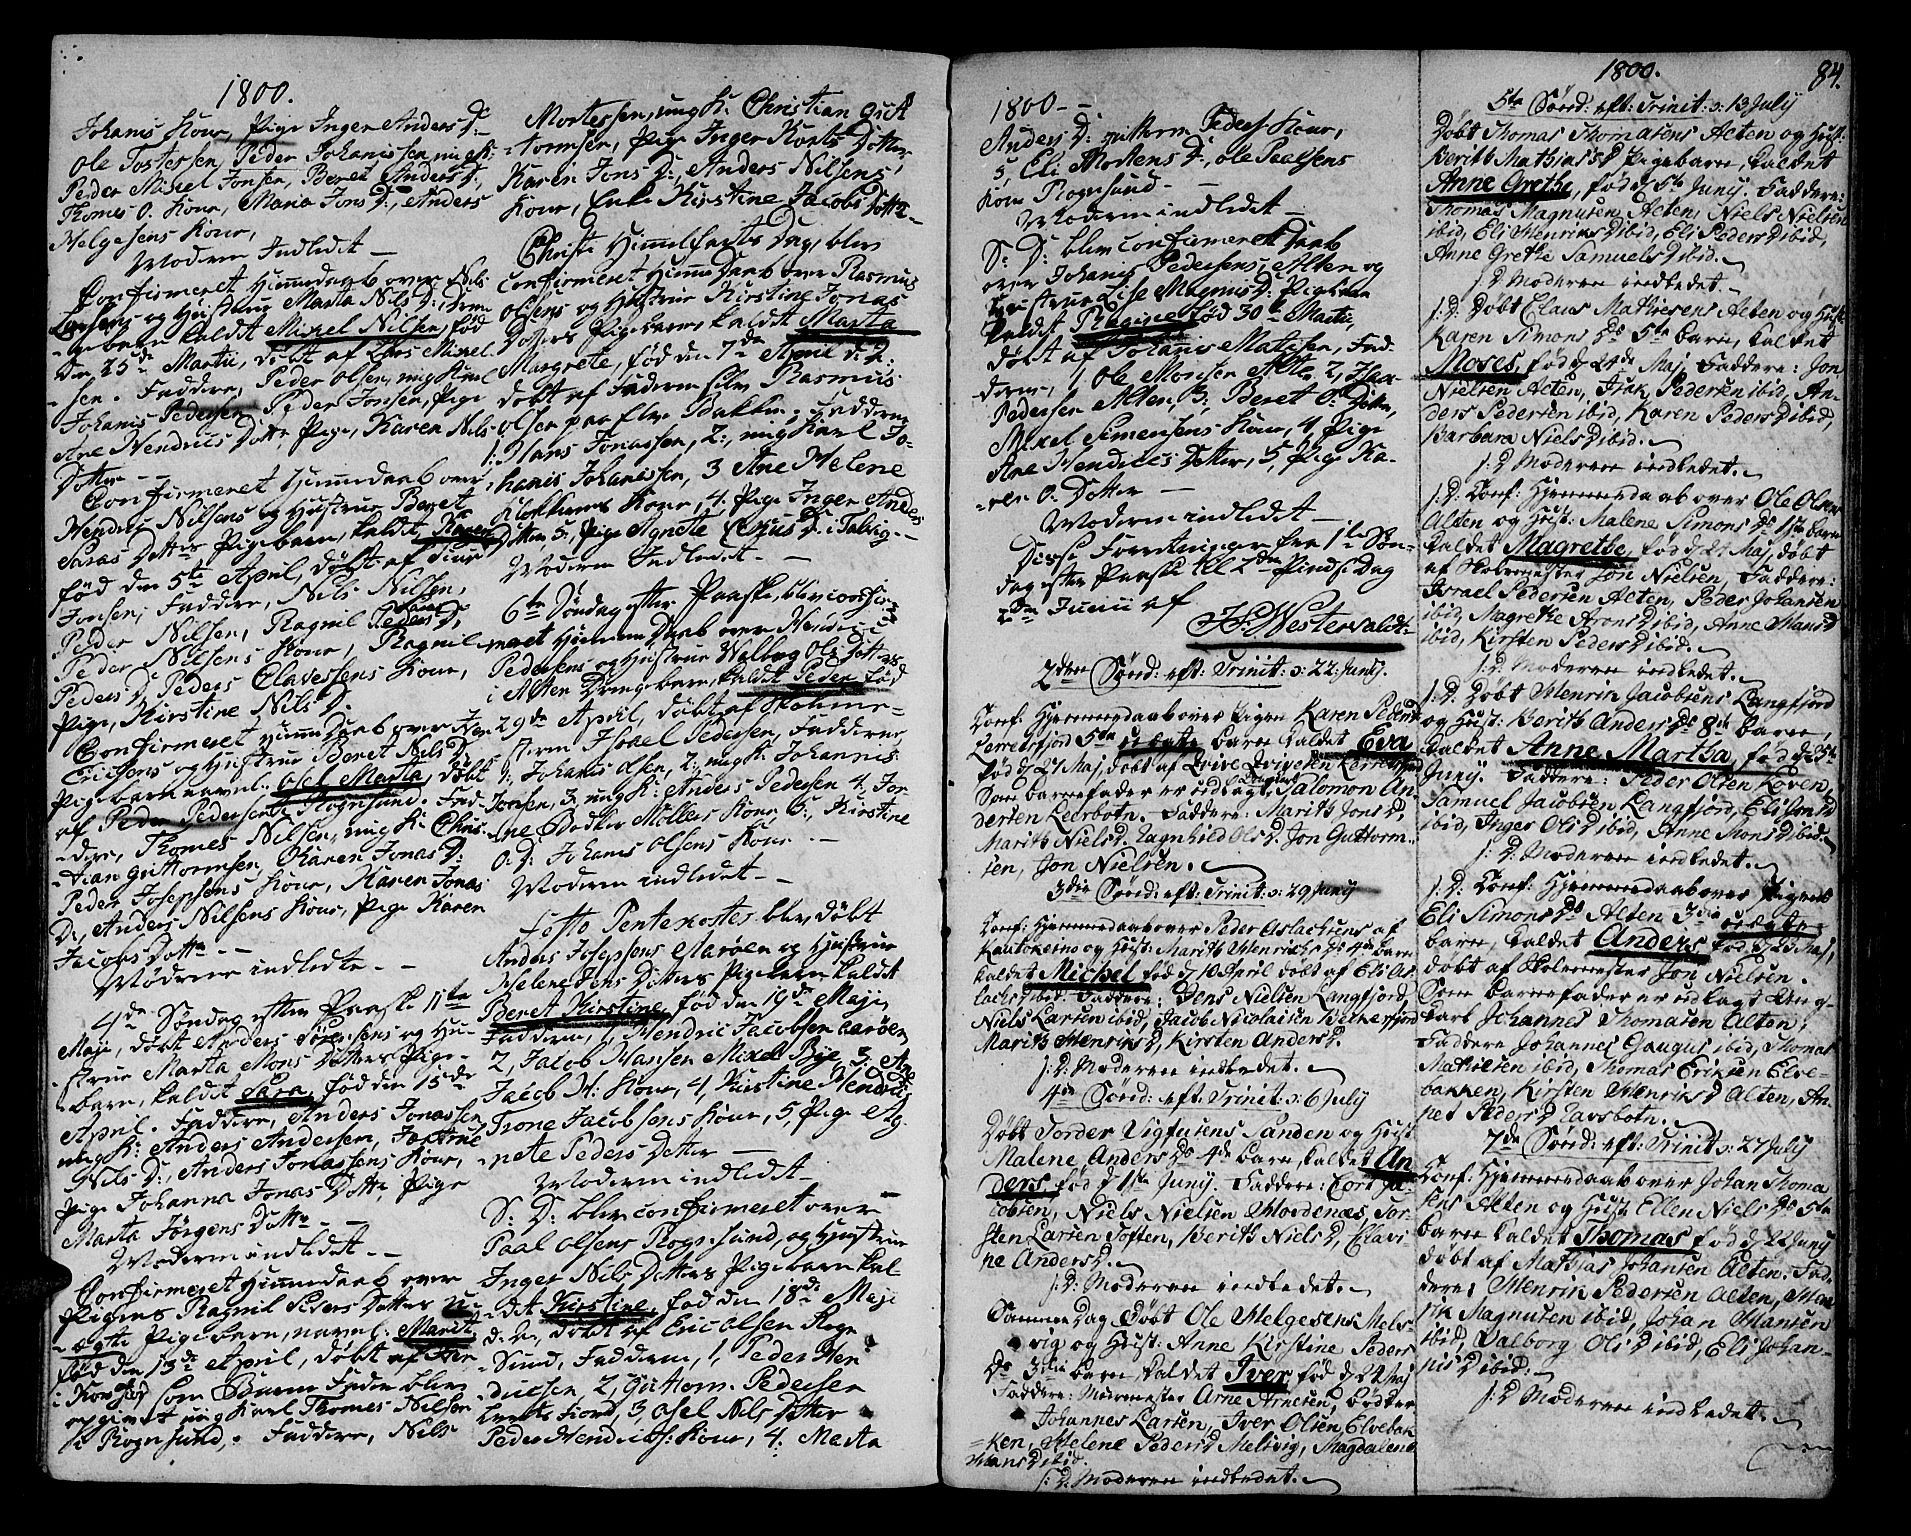 1800.
Johanis Kone, Pige Inger Anders D:
Ole Tostersen, Peder Johanissen, ung K:
Peder Mixel Jonsen, Beret Anders D:,
Thomes O. Kone, Maria Jons D:, Anders
Helgesens Kone,
Moderen Indledet —
Confirmeret Hiemmedaab over Nils
Larsens og Hustrue Marta Nils D:, Dren-
gebarn kaldt Mixel Nilsen, fød
den 25de Martii, døbt af Lars Mixel-
sen. Faddere, Peder Olsen, ung Karl
Johanis Pedersen, Peder Jonsen, Pige
Ane Hendrics Dotter, Pige, Karen Nils
Dotter —
Confirmeret Hiemmedaab over,
Hendric Nilsens og Hustrue Beret
Saras Dotters Pigebarn, kaldt Karen
fød den 5te April, døbt af Siur
Jonsen, Faddere, Nils Nilsen,
Peder Nilsen, Ragnil Peders D:,
Peder Nilsens Kone, Ragnil
Peders D: Peders Clavessens Kone,
Pige, Kirstine Nils D.
Confirmeret Hiemmedaab over Hen-
Ericsens og Hustrue Beret Nils D:
Pigebarn navnl: Osel Marta, døbt
af Peder Pedersen Rognsund. Fad-
dere, Thomes Nilsen, ung K: Chris-
tian Guttormsen, Karen Jonas D:
Peder Josephsens Kone, Karen Jonas
D:, Anders Nilsens Kone, Pige Karen
Jacobs Dotter —
Mødrene indledte —
4de Søndag efter Paaske 11te
Maji, døbt Anders Sørensens og Hu-
strue Marta Mons Dotters Pige-
barn, kaldt Sara, fød den 15de
April. Faddere, Anders Jonassen
ung K: Anders Andersen,
Nils D:, Anders Jonassens Kone,
Pige Johanna Jonas Dotter, Pige
Marta Jørgens Dotter —
Moderen indledt —
Confirmeret Hiemmedaab over
Pigens Ragnil Peders Dotters u-
ægte Pigebarn, navnl: Marit
fød den 13de April, døbt af Per
i Komfor, som Barne Fader blev
opgivet ung Karl Thomes Nilsen
i Rognsund. Faddere, Nils
Mortessen, ung K: Christian Gut
tormsen, Pige Inger Korts Dotter
Karen Jons D:, Anders Nilsens
Kone, Enke Kirstine Jacobs Dotter
Christi Himmelfarts Dag, blev
confirmeret Hiemme Daab over Rasmus
Olsens og Hustrue Kirstine Jonas
Dotters Pigebarn, kaldt Marta
Margrete, fød den 7de April d: A:
døbt af Faderen selv Rasmus
Olsen paa Elve Bakken. Faddere
1: Hans Jonassen, 2:, ung Karl Jo-
hanis Johanissen, 3 Ane Helene
Klokkerens Kone, 4: Pige Inger Anders
Dotter, 5, Pige Agnete Crius D: i Talvig.
Moderen Indledet —
6te Søndag efter Paaske, blev confir-
meret Hiemme Daab over Hendric
Pedersens og Hustrue Walborg Ols Dotters
i Alten Drengebarn, kaldet Peder fød
29de April, døbt af Skolme-
steren Israel Pedersen, Faddere
1: Johanis Olsen, 2:, ung K: Johannis
Jonsen, 3, ung K: Anders Pedersen 4, Jor-
ne Bødker Møllers Kone, 5:, Kirstine
O. D: Johanis Olsens Kone —
Moderen indledt —
Festo Pentekostes blev døbt
Anders Josephsens Marøen og Hustrue
Helene Jens Dotters Pigebarn kaldt
Beret Kirstine, fød den 19de Maji,
Faddere, 1, Hendric Jacobsen Aarøen,
2, Jacob Hansen Mixel Bye, 3, Ane
Jacob H: Kone, 4, Kirstine Hendrics
Trone Jacobsens Kone, 5, Pige Ag-
nete Peders Dotter —
Moderen indledt —
S: D: blev confirmeret over
Paal Olsens Rogs-sund, og Hustrue
Inger Nils Dotters Pigebarn kal-
det Kirstine, fød den 18de Maji
d: A:, døbt af Eric Olsen Rogn
Sund, Faddere, 1, Peder Hen-
dricsen, 2, Guttorm Pedersen
Leerets Fiord, 3, Osel Nils Dotter
Peder Hendrics: Kone, 4: Marta
1800 —
Anders D: Guttorm Peders Kone,
5, Eli Mortens D:, Ole Paalsens
Kone Rognsund —
Moderen indledet —
S: D: blev confirmeret Daab
over Johanis Pedersens, Alten og
Hustrue Lise Magnus D: Pigebarn
kaldt Ragine fød 30te Martii,
døbt af Johanis Mathisen, Fad-
dere, 1, Ole Monsen Alten, 2, Isax
Pedersen Alten, 3, Beret O. Dotter,
Mixel Simensens Kone, 4 Pige
Ane Hendrics Dotter, 5, Pige Ka-
ren O. Dotter —
Moderen indledt —
Disse Forretninger fra 1te Søn-
dag efter Paaske til 2den Pindse Dag
2den Junii af
H. Westervaldt.
2den Sønd: eft: Trinit: ɔ: 22: Junÿ.
Conf: Hjemmedaab over Pigen Karen Peders D
Lerretsfjord 5te uægte barn kaldet Eva
fød d 27 Maj, døbt af Qvive Qviveten Lerretsfjord
Som barnefader er udlagt Salomon An-
dersen Leerbotn. Faddere: Marith Jons D,
Marith Niels D, Ragnhild Ols D, Jon Guttorm-
sen, Jon Nielsen.
3die Sønd: eft: Trinit: ɔ: 29 Junÿ
Conf: Hjemmedaab over Peder Aslachsens af
Kautokeino og Hust: Marith Henrichs Ds 4de barn
kaldet Michel fød d 10 April døbt af Eli As-
lachs D ibid. Faddere: Jens Nielsen Langfjord,
Niels Larsen ibid, Jacob Nicolaisen Bekkerfjord
Marith Henriks D, Kirsten Anders D.
S: D: Moderen indledet.
4de Sønd: eft: Trinit: ɔ: 6 July
Døbt Torder Vigfusens Sanden og Hust:
Malene Anders Ds 4de barn, kaldet An
ders, fød d 1ste Junÿ. Faddere: Cort Ja-
cobsen, Niels Nielsen Nordenæs, Tor-
sten Larsen Toften, Berith Niels D, Elavi-
ne Anders D.
S: D: Moderen indledet.
Samme Dag Døbt Ole Helgesens Mels-
vig og Hust: Anne Kirstine Peders
Ds 3die barn kaldet Iver fød d 24 Maj
Faddere: Murmester Arne Arnesen, Bødker
Johannes Larsen, Iver Olsen, Elvebak-
ken, Helene Peders D Melsvig, Magdalene
Hans D ibid.
S: D: Moderen indledet.
1800.
84.
5te Sønd: eft: Trinit: ɔ: 13 July
Døbt Thomas Thomasens Alten og Hust:
Berith Mathias Ds Pigebarn kaldet
Anne Grethe, fød d 5te Junÿ. Faddere:
Thomas Magnusen Alten, Niels Nielsen
ibid, Eli Henriks D ibid, Eli Peders D ibid,
Anne Grethe Samuels D ibid.
S: D Moderen indledet.
S: D: Døbt Claus Mathiesens Alten og Hust:
Karen Simons Ds 5te barn, kaldet
Moses, fød d 24de Maj. Faddere: Jon
Nielsen Alten, Isak Pedersen ibid, An-
ders Pedersen ibid, Karen Peders D ibid,
Barbara Niels D ibid.
S: D Moderen indledet.
S: D: Conf: Hjemmedaab over Ole Olsens
Alten og Hust: Malene Simons Ds 1ste barn
kaldet Magrethe, fød d 21 Maj, døbt
af Skolemester Jon Nielsen, Faddere:
Israel Pedersen Alten, Peder Johansen
ibid, Magrethe Arons D ibid, Anne Hans D
ibid, Kirsten Peders D ibid.
S: D: Moderen indledet.
S: D: Døbt Henrik Jacobsens Langfjord
og Hust: Berith Anders Ds 8de barn,
kaldet Anne Martha, fød d 25de
Junÿ. Faddere: Peder Olsen Koven,
Samuel Jacobsen Langfjord, Eli Jons D
ibid, Inger Ols D ibid, Anne Mons D ibid.
S: D: Moderen indledet.
S: D: Conf: Hjemmedaab over Pigens
Eli Simons Ds Alten 3die uægte
barn, kaldet Anders fød d 20 Maj,
døbt af Skolemester Jon Nielsen.
Som barnefader er udlagt Ung-
karl Johannes Thomasen Alten.
Faddere Johannes Gaugus ibid, Thomas
Mathiesen ibid, Thomas Eriksen Elve-
bakken, Kirsten Henriks D Alten, An-
ne Peders D Tavsbotn.
7de Sønd: eft: Trinit: ɔ: 27 July
Conf: Hjemmedaab over Johan Thoma
sens Alten og Hust Ellen Niels Ds 5te
barn kaldet Thomas fød d 22 Junÿ
døbt af Mathias Johansen Alten. Fad-
dere: Henrik Pedersen Alten, Hen-
rik Magnusen ibid, Johan Hansen
ibid, Valborg Ols D ibid, Eli Johan-
nis D ibid.
S: D Moderen indledet.